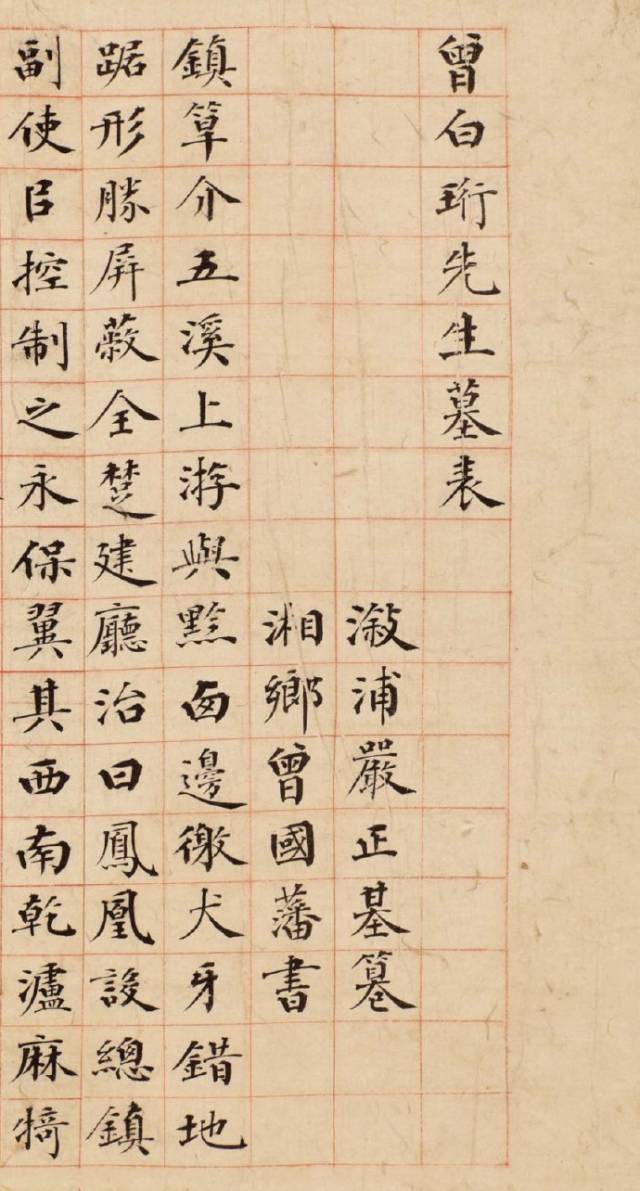 曾白珩先生墓表
漵浦嚴正基篹
湘鄉曾國藩書
鎮筸介五溪上游與黔囪邊徼犬牙錯地
踞形勝屏蔽全楚建廳治曰鳳凰設總鎮
副使㠯控制之永保翼其西南乾瀘麻犄